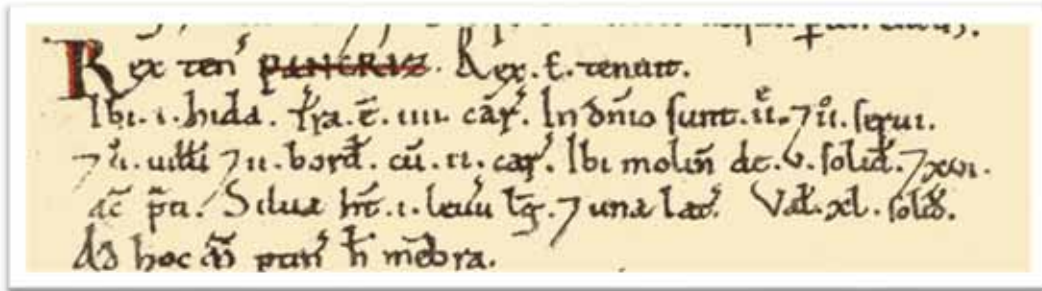 Rex ten̄ PANCRIZ. Rex. E. tenuit.
Ibi. i. hida. Tr̄a. ē. iiii. car̄. In dn̄io sunt. ii. ⁊ ii. serui.
⁊ ii. uill̄i ⁊ ii. bord̄. cū. ii. car̄. Ibi molin̄ de. v. solid̄. ⁊ xvi.
ac̄ p̄ti. Silua ht̄. i. leuu lḡ. ⁊ una lat̄. Val̄. xl. solid̄.
Ad hoc m̄ ptin̄ h̄ mēbra.